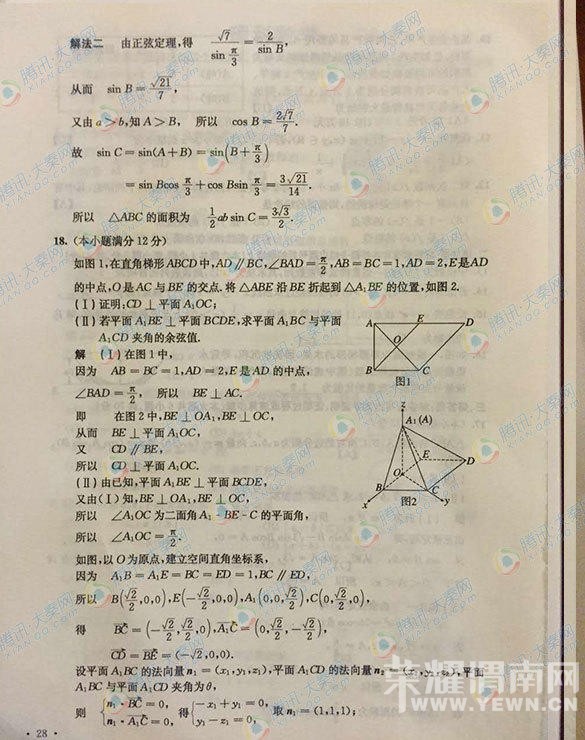 解法二 由正弦定理,得 √7/sin π/3 = 2/sin B,
从而 sin B = √21/7,
又由 a > b,知 A > B, 所以 cos B = 2√7/7.
故 sin C = sin(A+B) = sin(B + π/3)
= sin Bcos π/3 + cos Bsin π/3 = 3√21/14.
所以 △ABC 的面积为 1/2 ab sin C = 3√3/2.
18. (本小题满分 12 分)
如图 1,在直角梯形 ABCD 中,AD ∥ BC,∠BAD = π/2,AB = BC = 1,AD = 2,E 是 AD
的中点,O 是 AC 与 BE 的交点. 将 △ABE 沿 BE 折起到 △A₁BE 的位置,如图 2.
(Ⅰ) 证明:CD ⊥ 平面 A₁OC;
(Ⅱ) 若平面 A₁BE ⊥ 平面 BCDE,求平面 A₁BC 与平面
A₁CD 夹角的余弦值.
A E D
O
B C
图1
解 (Ⅰ) 在图 1 中,
因为 AB = BC = 1,AD = 2,E 是 AD 的中点,
∠BAD = π/2, 所以 BE ⊥ AC.
即 在图 2 中,BE ⊥ OA₁,BE ⊥ OC,
从而 BE ⊥ 平面 A₁OC,
又 CD ∥ BE,
所以 CD ⊥ 平面 A₁OC.
(Ⅱ) 由已知,平面 A₁BE ⊥ 平面 BCDE,
又由(Ⅰ)知,BE ⊥ OA₁,BE ⊥ OC,
所以 ∠A₁OC 为二面角 A₁ - BE - C 的平面角,
所以 ∠A₁OC = π/2.
z
A₁ (A)
E D
O
B C
x y
图2
如图,以 O 为原点,建立空间直角坐标系,
因为 A₁B = A₁E = BC = ED = 1,BC ∥ ED,
所以 B(√2/2,0,0),E(-√2/2,0,0),A₁(0,0,√2/2),C(0,√2/2,0),
得 BC = (-√2/2,√2/2,0),A₁C = (0,√2/2,-√2/2),
CD = BE = (-√2,0,0).
设平面 A₁BC 的法向量 n₁ = (x₁,y₁,z₁),平面 A₁CD 的法向量 n₂ = (x₂,y₂,z₂),平面
A₁BC 与平面 A₁CD 夹角为 θ,
则 { n₁·BC = 0, n₁·A₁C = 0, 得 { -x₁ + y₁ = 0, y₁ - z₁ = 0, 取 n₁ = (1,1,1);
· 28 ·
荣耀渭南网
WWW.YEWN.CN
腾讯·大秦网
XIAN.QQ.COM